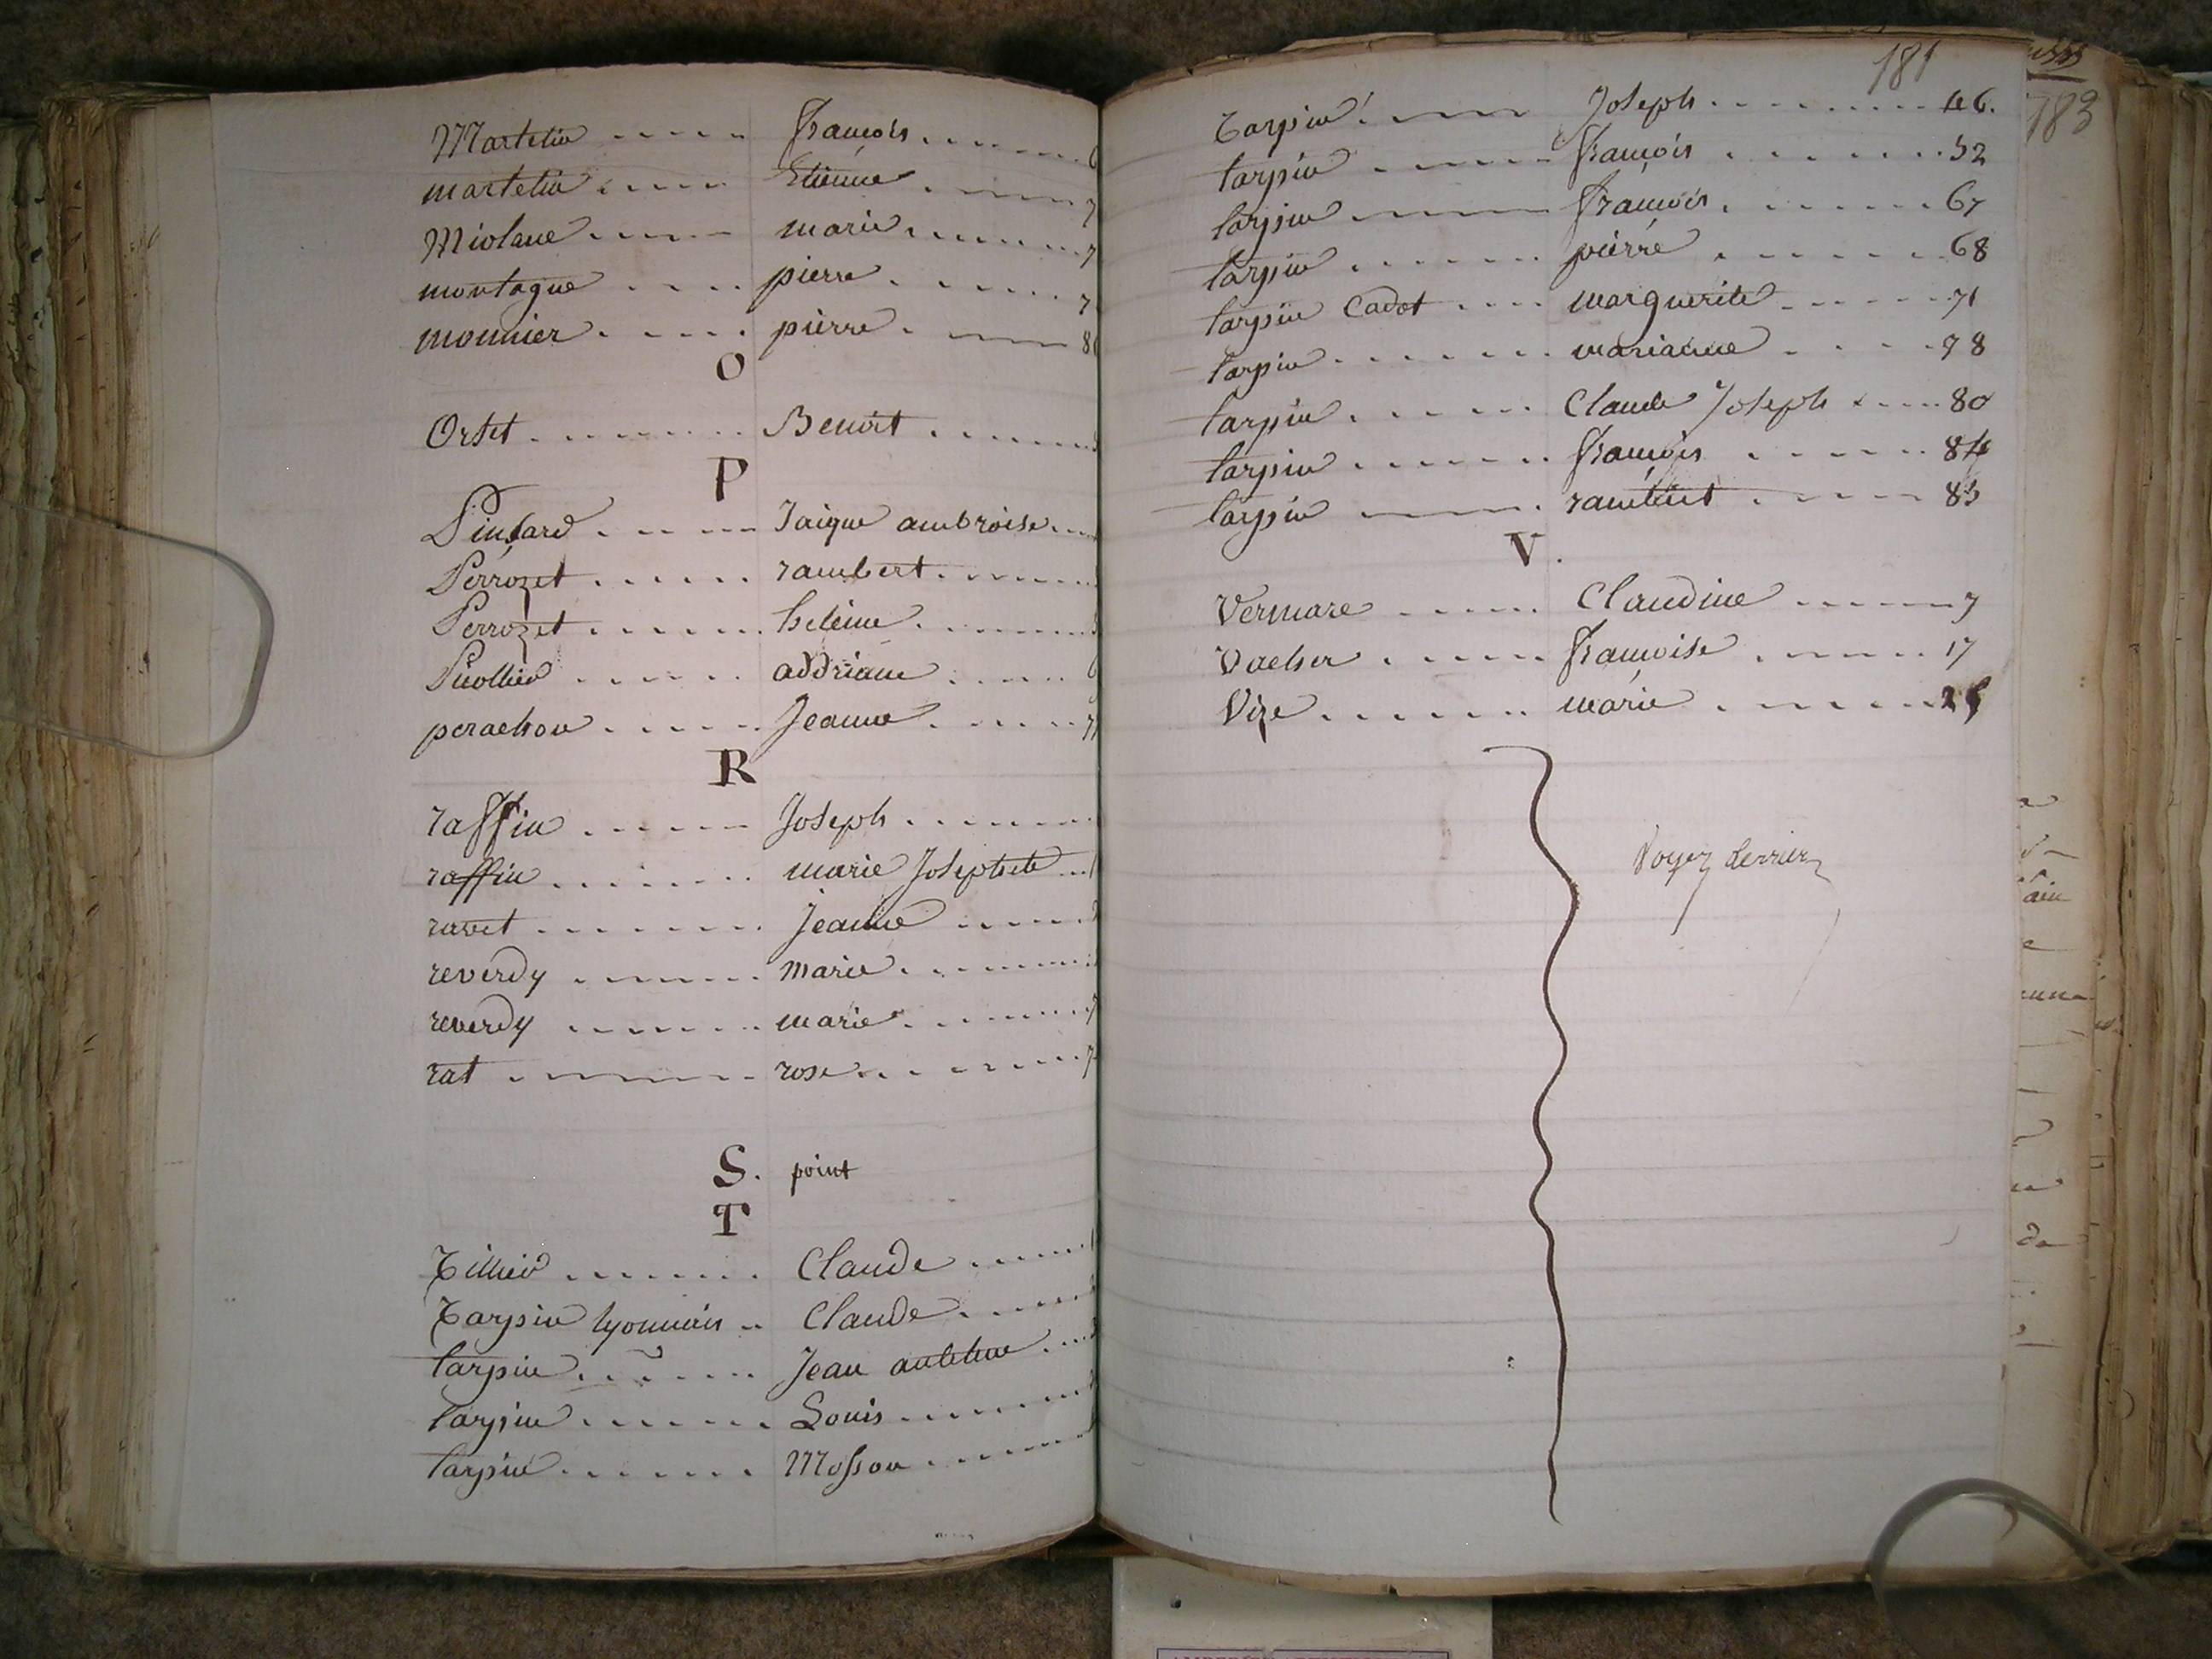 Martelin françois 6
martelin Etienne 7
Miolane marie 7
montagne pierre 7
monnier pierre 8
O
Ortet Benoit
P
Pinsard Jaique ambroise
Perrozet rambert
Perrozet heleine
Piollied addriane 6
perachon Jeanne 7
R
raffin Joseph
raffin marie Josephete
ravet Jeanne
reverdy marie
reverdy marie 7
rat rose 7
S. point
T
Tillied Claude
Tarpin lyonnois Claude
tarpin Jean antelme
tarpin Louis
tarpin Mosson
181
Tarpin Joseph 46.
tarpin françois 52
tarpin françois 67
tarpin pierre 68
tarpin Cadot marguerite 71
tarpin marianne 78
tarpin Claude Joseph 80
tarpin françois 84
tarpin rambert 85
V.
Vermare Claudine 7
Vacher françoise 17
Vize marie 25
Voyez derrier
183
ain
e
de